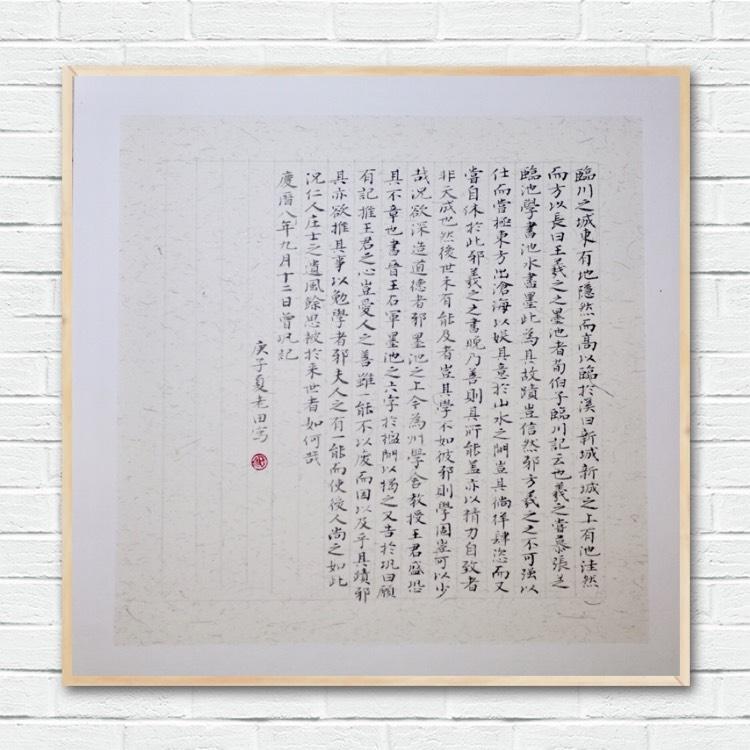 臨川之城東有地隱然而高以臨於溪曰新城新城之上有池洼然
而方以長曰王羲之之墨池者荀伯子臨川記云也羲之嘗慕張芝
臨池學書池水盡墨此為其故蹟豈信然邪方羲之之不可強以
仕而嘗極東方出滄海以娱其意於山水之間豈其徜徉肆恣而又
嘗自休於此邪羲之之書晚乃善則其所能蓋亦以精力自致者
非天成也然後世未有能及者豈其學不如彼邪則學固豈可以少
哉况欲深造道德者邪墨池之上今為州學舍教授王君盛恐
其不章也書晉王右軍墨池之六字於楹間以揭之又告於巩曰願
有記推王君之心豈愛人之善雖一能不以廢而因以及乎其蹟邪
其亦欲推其事以勉學者邪夫人之有一能而使後人尚之如此
况仁人庄士之遺風餘思被於来世者如何哉
慶曆八年九月十二日曾巩記
庚子夏老田寫